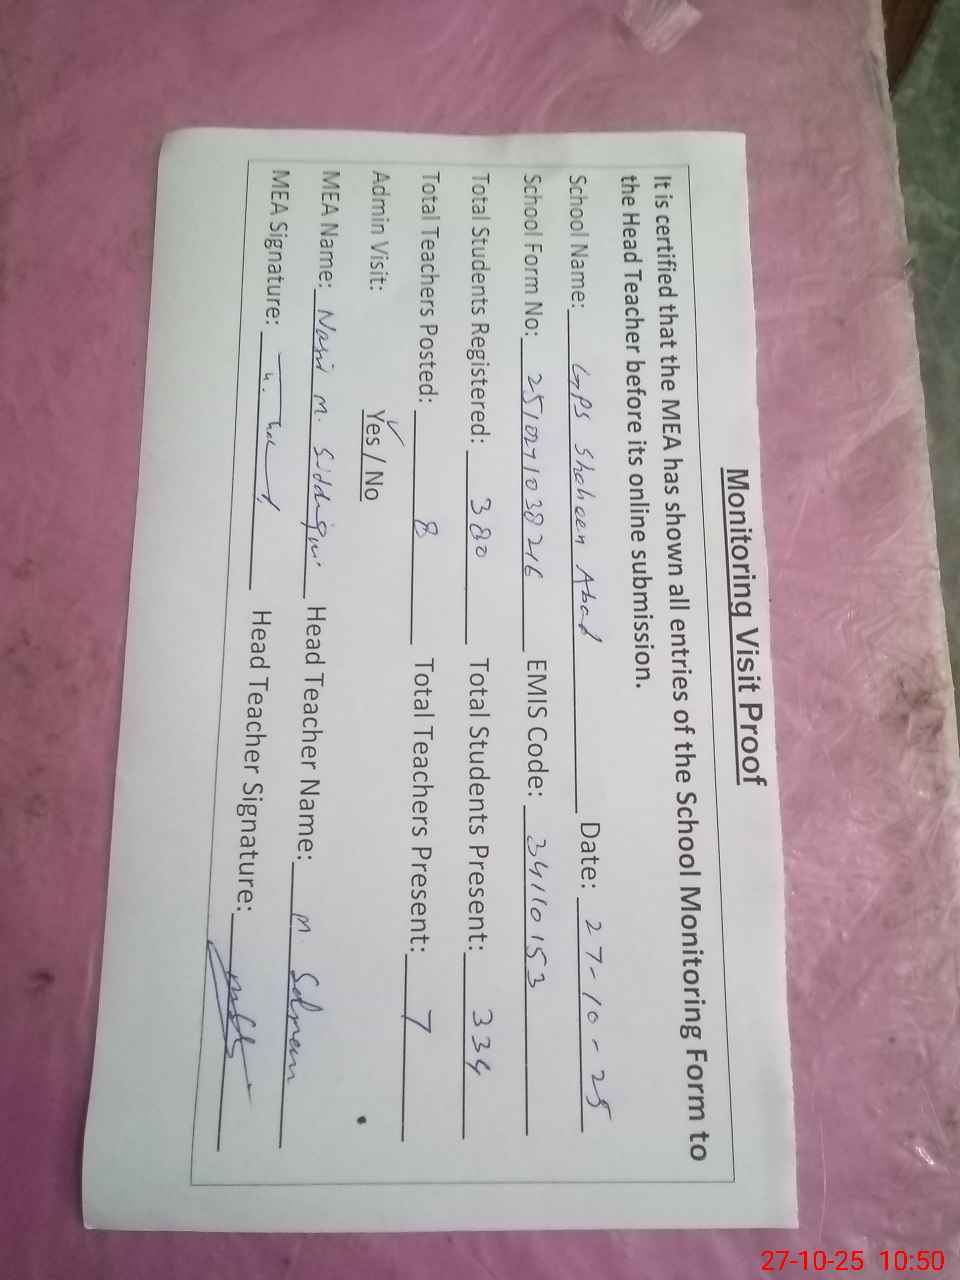 Monitoring Visit Proof
It is certified that the MEA has shown all entries of the School Monitoring Form to
the Head Teacher before its online submission.
School Name: GPS Shaheen Abad Date: 27-10-25
School Form No: 2510271038216 EMIS Code: 34110153
Total Students Registered: 380 Total Students Present: 334
Total Teachers Posted: 8 Total Teachers Present: 7
Admin Visit: Yes / No
MEA Name: Nasir M. Siddiqui Head Teacher Name: M. Salman
MEA Signature: Head Teacher Signature:
27-10-25 10:50